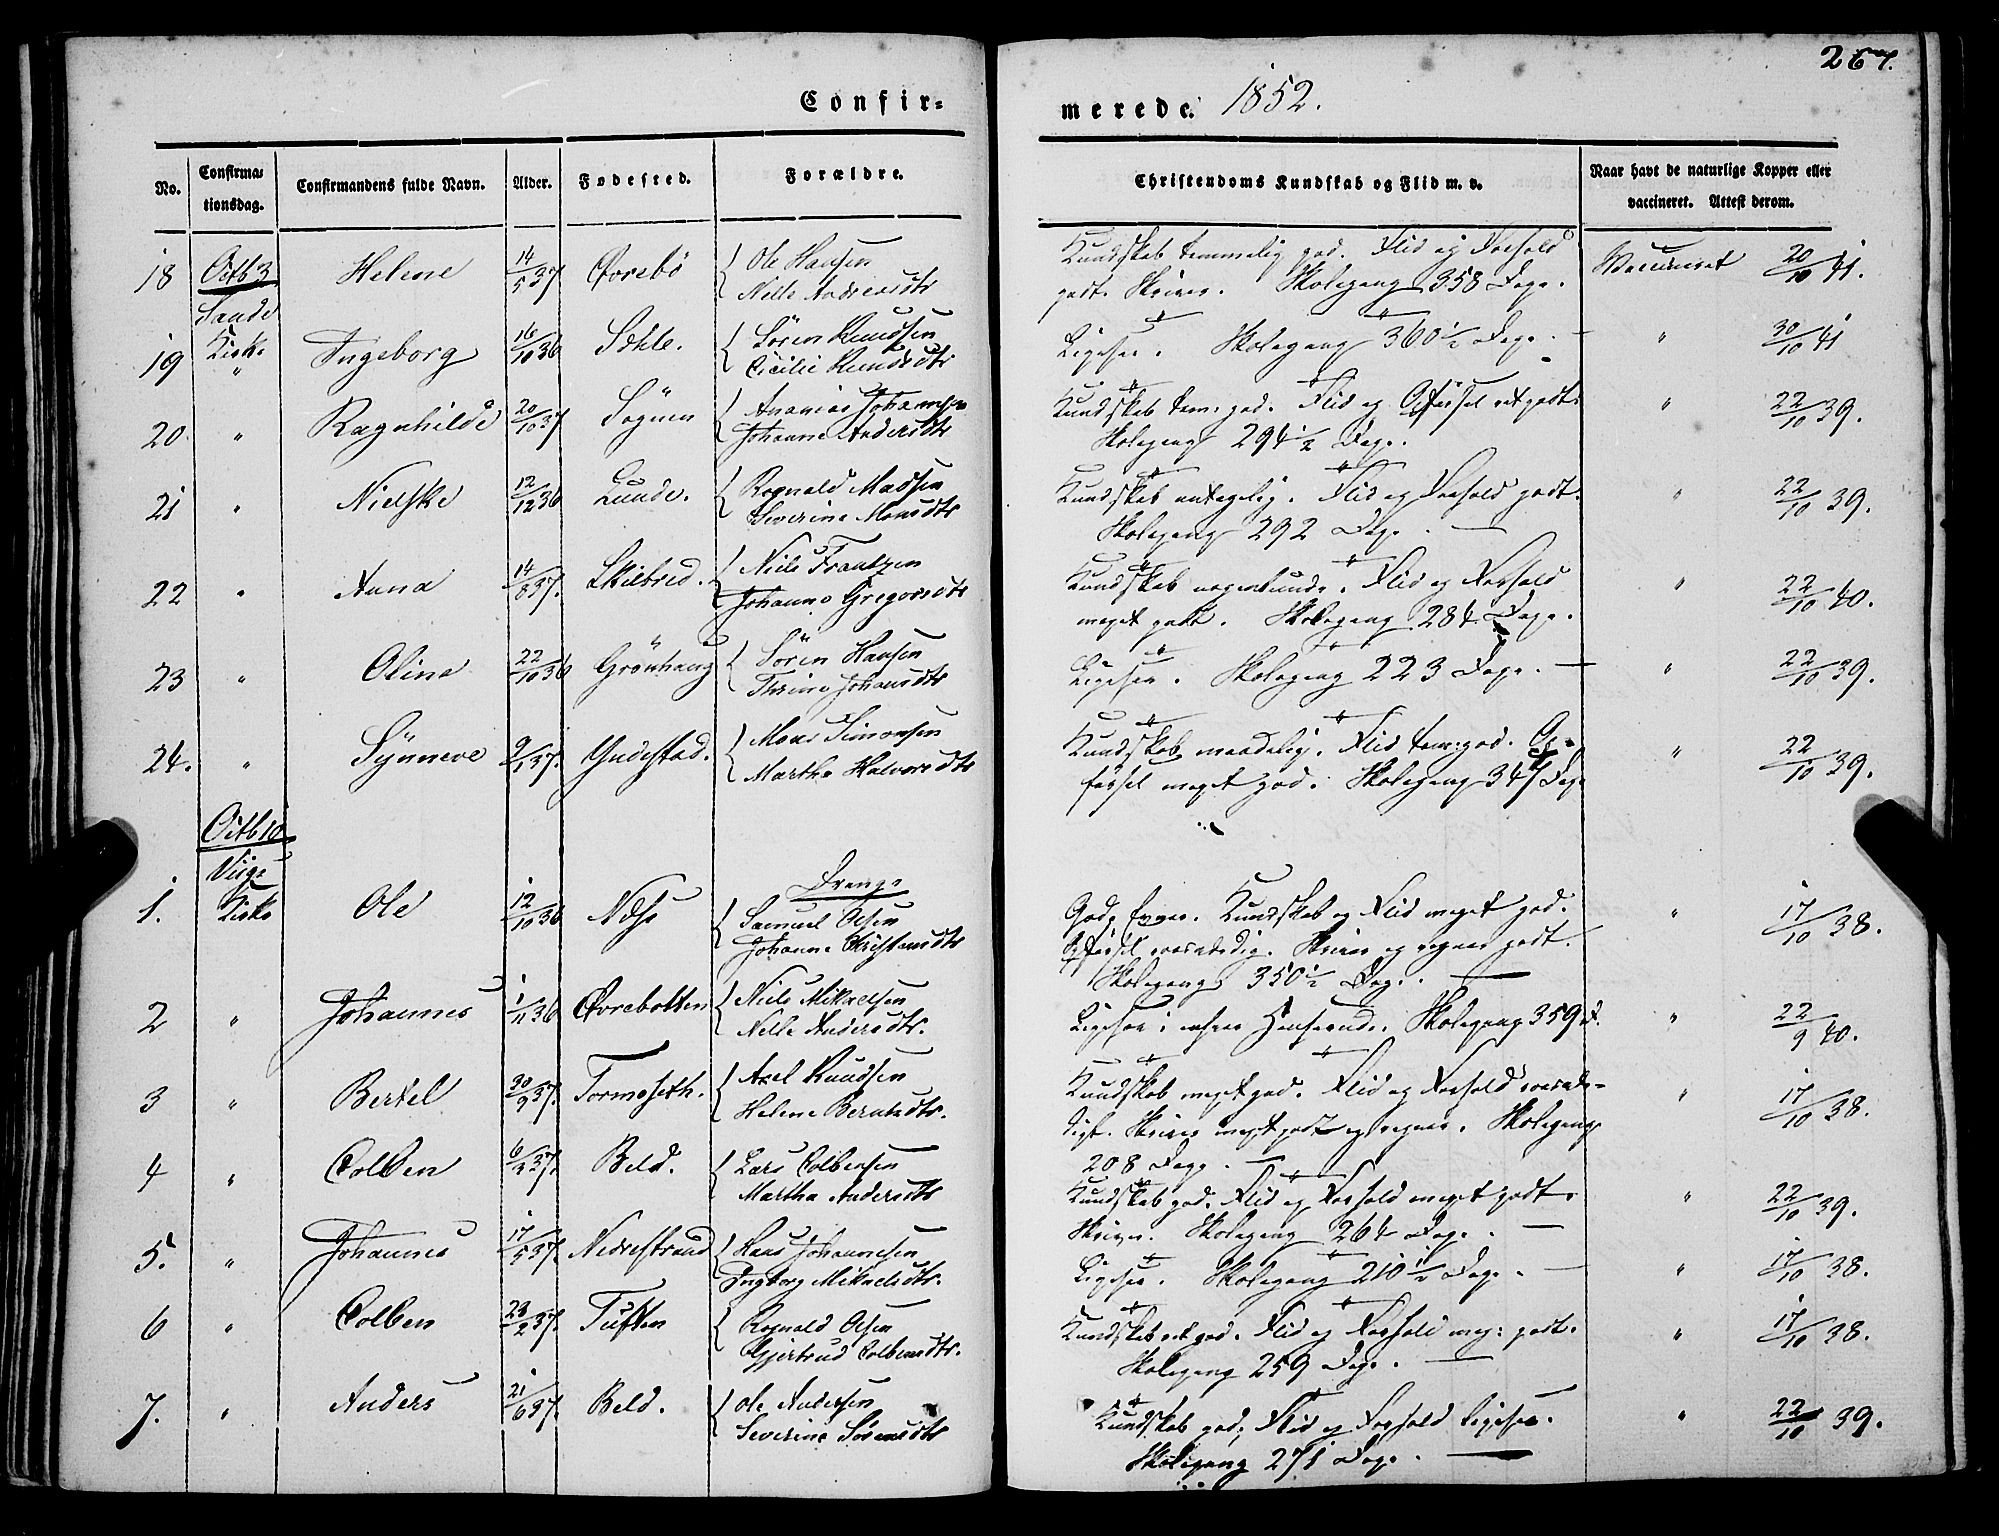 267.
Confir=
merede. 1852.
No.
Confirma-
tionsdag.
Confirmandens fulde Navn.
Alder.
Fødested.
Forældre.
Christendoms Kundskab og Flid m. v.
Naar havt de naturlige Kopper eller
vaccineret. Attest derom.
18 Octb 3 Helene 14/5 37. Øvrebö Ole Hansen
Nille Andreasdtr
Kundskab temmelig god. Flid og Forhold
godt. Skriver. Skolegang 358 Dage.
Vaccineret 20/10 41.
Sande
Kirke
19 " Ingeborg 16/10 36 Sæhle. Sören Knudsen
Cicilie Knudsdtr
Ligesaa. Skolegang 360 1/2 Dage. " 30/10 41
20 " Ragnhilde 20/10 37 Sognen Ananias Johansen
Johanne Andersdtr
Kundskab tem: god. Flid og Opförsel ret godt.
Skolegang 294 1/2 Dage.
" 22/10 39.
21 " Nielske 12/12 36 Lunde. Rognald Madsen
Severine Monsdtr
Kundskab antagelig. Flid og Forhold godt.
Skolegang 292 Dage.
" 22/10 39.
22 " Anna 14/8 37. Skilbred. Niels Frantzen
Johanne Gregorsdtr
Kundskab nogenlunde. Flid og Forhold
meget godt. Skolegang 284 Dage.
" 22/10 40.
23 " Oline 22/10 36 Grönhaug Sören Hansen
Thrine Johansdtr
Ligesaa. Skolegang 223 Dage. " 22/10 39.
24. " Synneve 9/1 37. Yndestad. Mons Simonsen
Martha Halvorsdtr
Kundskab maadelig. Flid tem: god. Op=
førsel meget god. Skolegang 347 Dage
" 22/10 39.
Octb 10
Viigs
Kirke
Drenge
1. Ole 12/10 36 Næse Samuel Olsen
Johanne Christensdtr
Gode Evner. Kundskab og Flid meget god.
Opførsel roesværdig. Skriver og regner godt.
Skolegang 350 1/2 Dage.
" 17/10 38.
2 " Johannes 1/11 36 Øvrebotten Niels Mikaelsen
Nille Andersdtr.
Ligesaa i enhver Henseende. Skolegang 359 D. " 22/9 40.
3 " Bertel 30/9 37. Tormoseth. Axel Knudsen
Helene Berntsdtr.
Kundskab meget god. Flid og Forhold roesvær=
digt. Skriver meget godt og regner. Skolegang
208 Dage.
" 17/10 38.
4 " Colben 6/3 37. Beld. Lars Colbensen
Martha Andersdtr
Kundskab god. Flid og Forhold meget godt.
Skriver. Skolegang 264 Dage.
" 22/10 39.
5. " Johannes 17/5 37. Nedrestrand Hans Johannesen
Ingborg Mikaelsdtr.
Ligesaa. Skolegang 210 1/2 Dage. " 17/10 38.
6 " Colben 23/2 37. Tuften Rognald Olsen
Gjertrud Colbensdtr.
Kundskab ret god. Flid og Forhold meg: godt.
Skolegang 259 Dage.
" 17/10 38.
7. " Anders 21/6 37. Beld. Ole Andersen
Severine Sörensdtr
Kundskab god; Flid og Forhold ligesaa.
Skolegang 271 Dage.
" 22/10 39.